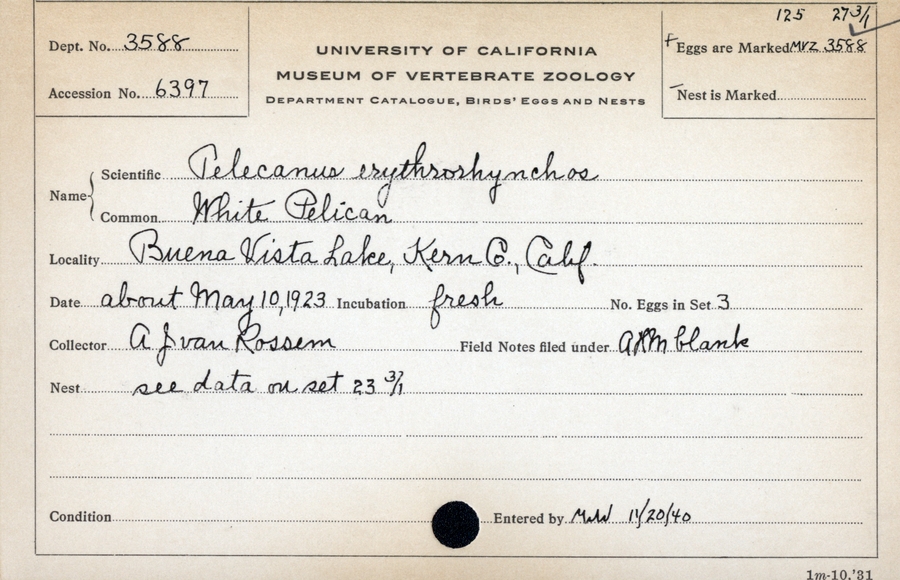 125 27 3/1
Dept. No. 3588
UNIVERSITY OF CALIFORNIA
+ Eggs are Marked MVZ 3588
MUSEUM OF VERTEBRATE ZOOLOGY
Accession No. 6397
DEPARTMENT CATALOGUE, BIRDS' EGGS AND NESTS
Nest is Marked
Name { Scientific Pelecanus erythrorhynchos
Common White Pelican
Locality Buena Vista Lake, Kern Co., Calif.
Date about May 10, 1923 Incubation fresh No. Eggs in Set 3
Collector A J van Rossem Field Notes filed under blank
Nest see data on set 23 3/1
Condition Entered by 11/20/40
1m-10,'31